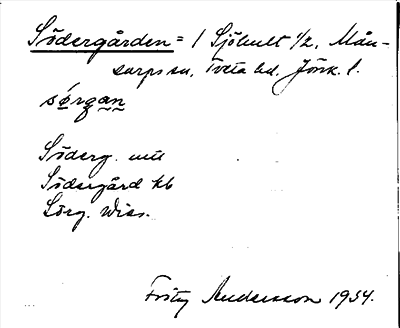 Södergården = 1 Sjöhult 1/2, Mån-
sarps sn, Tveta hd, Jönk. l.
sörgan
Söderg. utt
Södergård kb
Sörg. Wies.
Fritz Andersson 1934.